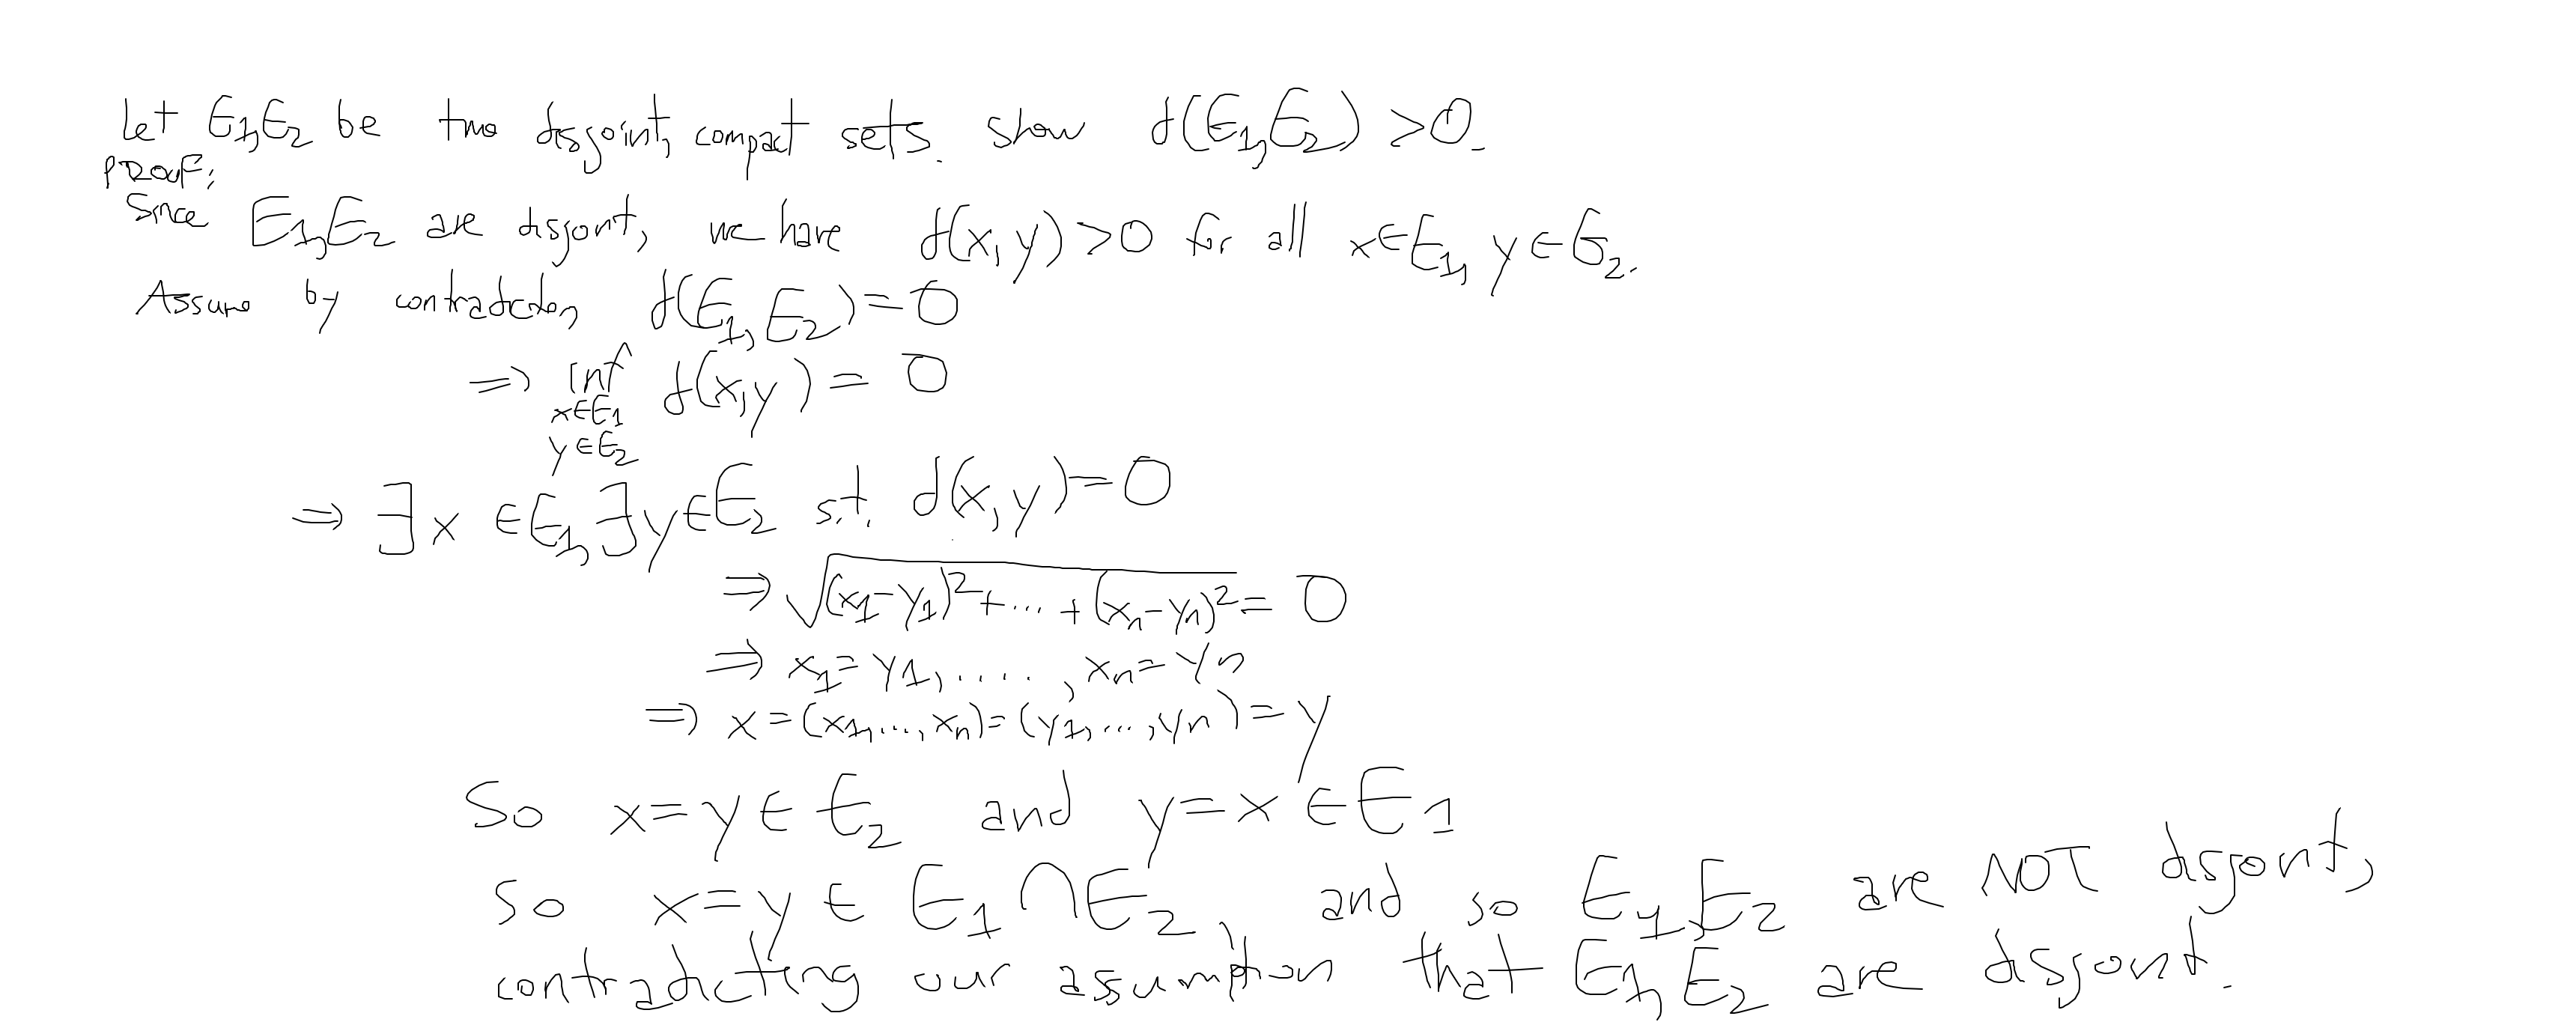 Let E1,E2 be two disjoint, compact sets. show d(E1,E2) >0.
PROOF:
Since E1,E2 are disjont, we have d(x,y)>0 for all x∈E1, y∈E2.
Assume by contradiction d(E1,E2)=0
=> inf d(x,y) = 0
x∈E1
y∈E2
=> ∃x ∈E1,∃y∈E2 s.t. d(x,y)=0
=> √(x1-y1)²+...+(xn-yn)² = 0
=> x1=y1,.....,xn=yn
=> x=(x1,...,xn)=(y1,...,yn)=y
So x=y∈E2 and y=x∈E1
So x=y∈ E1∩E2, and so E1,E2 are NOT disjont,
contradicting our assumption that E1,E2 are disjont.